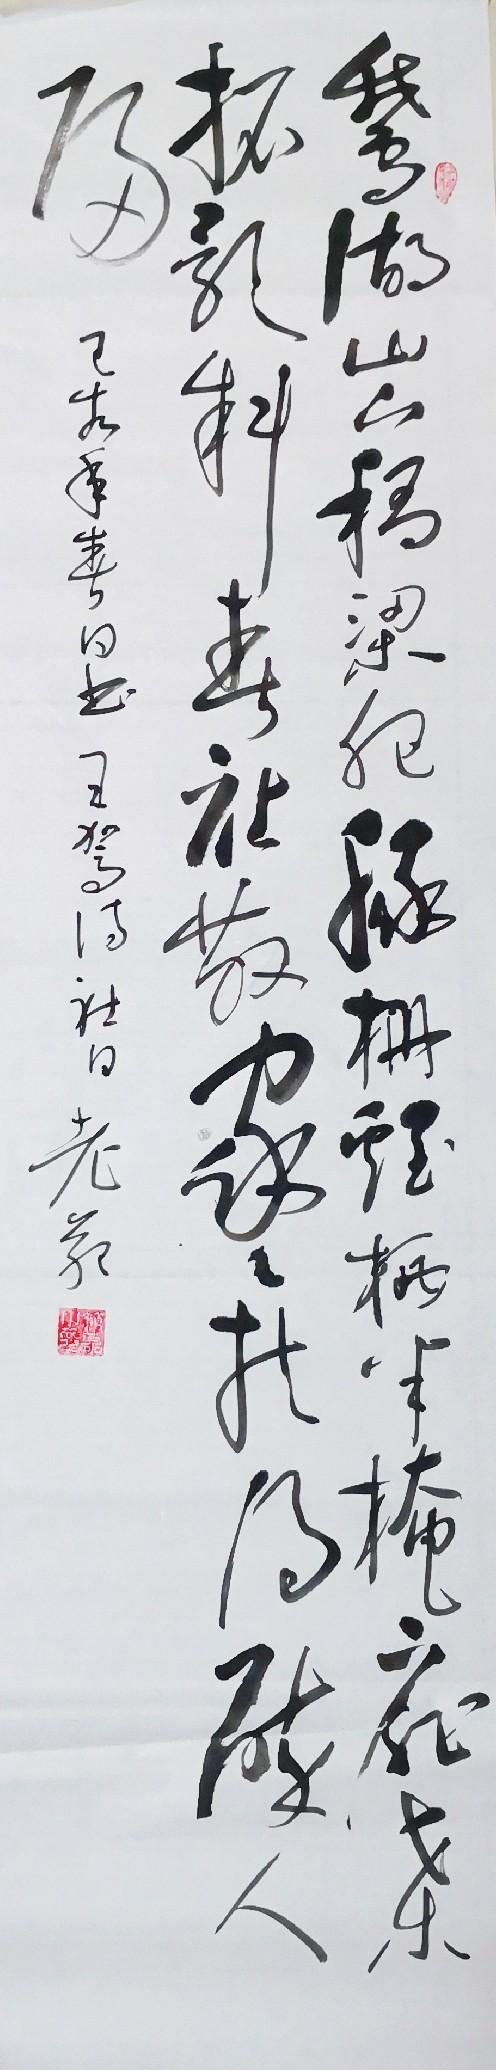 鵝湖山下稻粱肥豚栅雞栖半掩扉桑
柘影斜春社散家々扶得醉人
歸
己亥年春日书 王驾诗社日 老